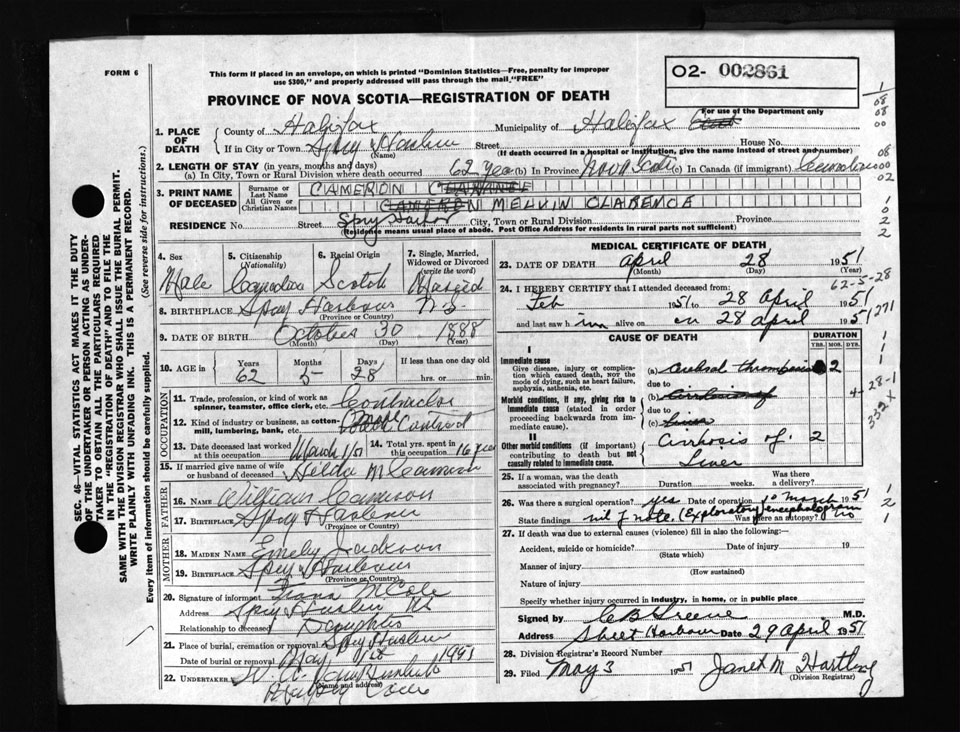 FORM 6
This form if placed in an envelope, on which is printed "Dominion Statistics—Free, penalty for improper
use $300," and properly addressed will pass through the mail "FREE"
PROVINCE OF NOVA SCOTIA—REGISTRATION OF DEATH
02- 002861
For use of the Department only
1. PLACE OF DEATH
County of Halifax Municipality of Halifax
If in City or Town Spry Harbour Street House No.
(Name) (If death occurred in a hospital or institution, give the name instead of street and number)
2. LENGTH OF STAY (in years, months and days)
(a) In City, Town or Rural Division where death occurred 62 Yrs (b) In Province Nova Scotia (c) In Canada (if immigrant)
3. PRINT NAME OF DECEASED
Surname or Last Name CAMERON
All Given or Christian Names CAMERON MELVIN CLARENCE
RESIDENCE No. Street Spry Harbor City, Town or Rural Division Province
(Residence means usual place of abode. Post Office Address for residents in rural parts not sufficient)
4. Sex
Male
5. Citizenship (Nationality)
Canadian
6. Racial Origin
Scotch
7. Single, Married, Widowed or Divorced (write the word)
Married
8. BIRTHPLACE Spry Harbour N.S.
(Province or Country)
9. DATE OF BIRTH October 30 1888
(Month) (Day) (Year)
10. AGE in Years Months Days If less than one day old
62 5 28 hrs. or min.
11. Trade, profession, or kind of work as
spinner, teamster, office clerk, etc. Contractor
12. Kind of industry or business, as cotton-
mill, lumbering, bank, etc.
13. Date deceased last worked at this occupation March 1/51
14. Total yrs. spent in this occupation 16 years
15. If married give name of wife or husband of deceased Hilda M Cameron
FATHER
16. NAME William Cameron
17. BIRTHPLACE Spry Harbour
(Province or Country)
MOTHER
18. MAIDEN NAME Emely Jackson
19. BIRTHPLACE Spry Harbour
(Province or Country)
20. Signature of informant
Address Spry Harbour NS
Relationship to deceased Daughter
21. Place of burial, cremation or removal Spry Harbour
Date of burial or removal May 1st 1951
22. UNDERTAKER
(Name and address)
MEDICAL CERTIFICATE OF DEATH
23. DATE OF DEATH April 28 1951
(Month) (Day) (Year)
62-5-28
24. I HEREBY CERTIFY that I attended deceased from:
Feb 1951 to 28 April 1951
and last saw him alive on 28 April 1951
CAUSE OF DEATH
DURATION
YRS. MOS. DYS.
I
Immediate cause
Give disease, injury or complication which caused death, not the mode of dying, such as heart failure, asphyxia, asthenia, etc.
(a) Cerebral thrombosis 2
due to
Morbid conditions, if any, giving rise to immediate cause (stated in order proceeding backwards from immediate cause).
(b) Cirrhosis of
due to
(c) Liver
II
Other morbid conditions (if important) contributing to death but not causally related to immediate cause.
Cirrhosis of 2
Liver
25. If a woman, was the death associated with pregnancy? Duration weeks. Was there a delivery?
26. Was there a surgical operation? yes Date of operation 10 March 1951
State findings nil of note. (Exploratory encephalogram Was there an autopsy? no
27. If death was due to external causes (violence) fill in also the following:
Accident, suicide or homicide? Date of injury 19
(State which)
Manner of injury
(How sustained)
Nature of injury
Specify whether injury occurred in industry, in home, or in public place
Signed by CB Greene M.D.
Address Sheet Harbour Date 29 April 1951
28. Division Registrar's Record Number
29. Filed May 3 1951 Janet M Hartling
(Division Registrar)
SEC. 46—VITAL STATISTICS ACT MAKES IT THE DUTY
OF THE UNDERTAKER OR PERSON ACTING AS UNDER-
TAKER TO OBTAIN ALL THE PARTICULARS REQUIRED
IN THE "REGISTRATION OF DEATH" AND TO FILE THE
SAME WITH THE DIVISION REGISTRAR WHO SHALL ISSUE THE BURIAL PERMIT.
WRITE PLAINLY WITH UNFADING INK. THIS IS A PERMANENT RECORD.
Every item of information should be carefully supplied. (See reverse side for instructions.)
1
08
08
00
08
00
02
1
0
2
2
271
28-1
332 X
1
2
1